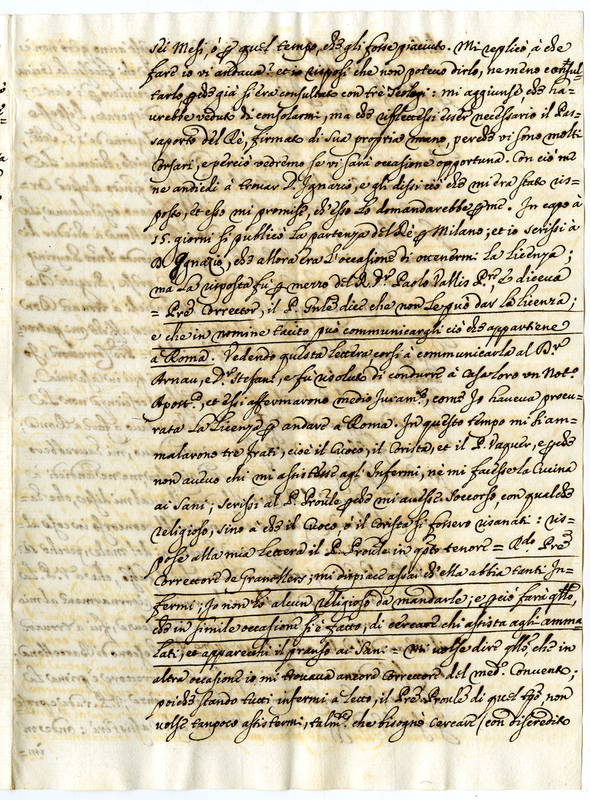 sei Mesi, ò p quel tempo, che gli fosse piaciuto. Mi replicò, à che
fare io vi andava? et io risposi che non potevo dirlo, ne meno consul-
tarlo, pche già s'era consultato con trè Teologi: mi aggiunse che ha-
urebbe veduto di consolarmi, ma che riflettessi esser necessario il Pas-
saporto del Rè, firmato di sua propria mano, perche vi sono molti
Corsari, e perciò vedremo se vi sarà occasione opportuna. Con ciò me
ne andiedi à trovar D. Ignazio, e gli dissi ciò che mi era stato ris-
posto, et esso mi promise, ch'esso lo domandarebbe p me. In capo à
15. giorni si publicò la partenza del Rè p Milano; et io scrissi à
D. Ignazio, che allora era l'occasione di ottenermi la licenza;
ma la risposta fù p mezzo del R. Pr Paolo Vallis Pre e diceva
= Pre Correttor, il P. Gnle dice che non le può dar la licenza;
e che in nomine tacito può communicargli ciò che appartiene
a Roma. Vedendo questa lettera corsi à communicarla al Dr
Arnau, e Dr Stefani, e fù risoluto di condurre à Casa loro un Notº
Apostº, et essi affermarono medio Iuramº, come Io haveva procu-
rata la licenza p andare a Roma. In questo tempo mi s'am-
malarono tre frati, cioè il Cuoco, il Corista, et il P. Vaquer, e pche
non avevo chi mi assistesse agl'Infermi, nè mi facesse la Cucina
ai Sani; scrissi al P. Provle pche mi desse soccorso, con qualche
religioso, sino à che il Cuoco, ò il Corista si fossero risanati: ris-
pose alla mia lettera il P. Provle in qsto tenore = Rdo Pre
Correttore de Granollers; mi dispiace assai ch'ella abbia tanti In-
fermi; Io non hò alcun religioso da mandarle; e pciò farà qllo,
che in simile occasione si è fatto, di cercare chi assista agli amma-
lati, et apparecchi il pranso ai Sani = Mi volse dire qllo, che in
altre occasioni io mi trovava ancora Correttore del medº Convento;
poiche stando tutti infermi à letto, il Pre Provle di quel tpo non
volse tampoco assistermi, talmte che bisognò cercare (con discredito